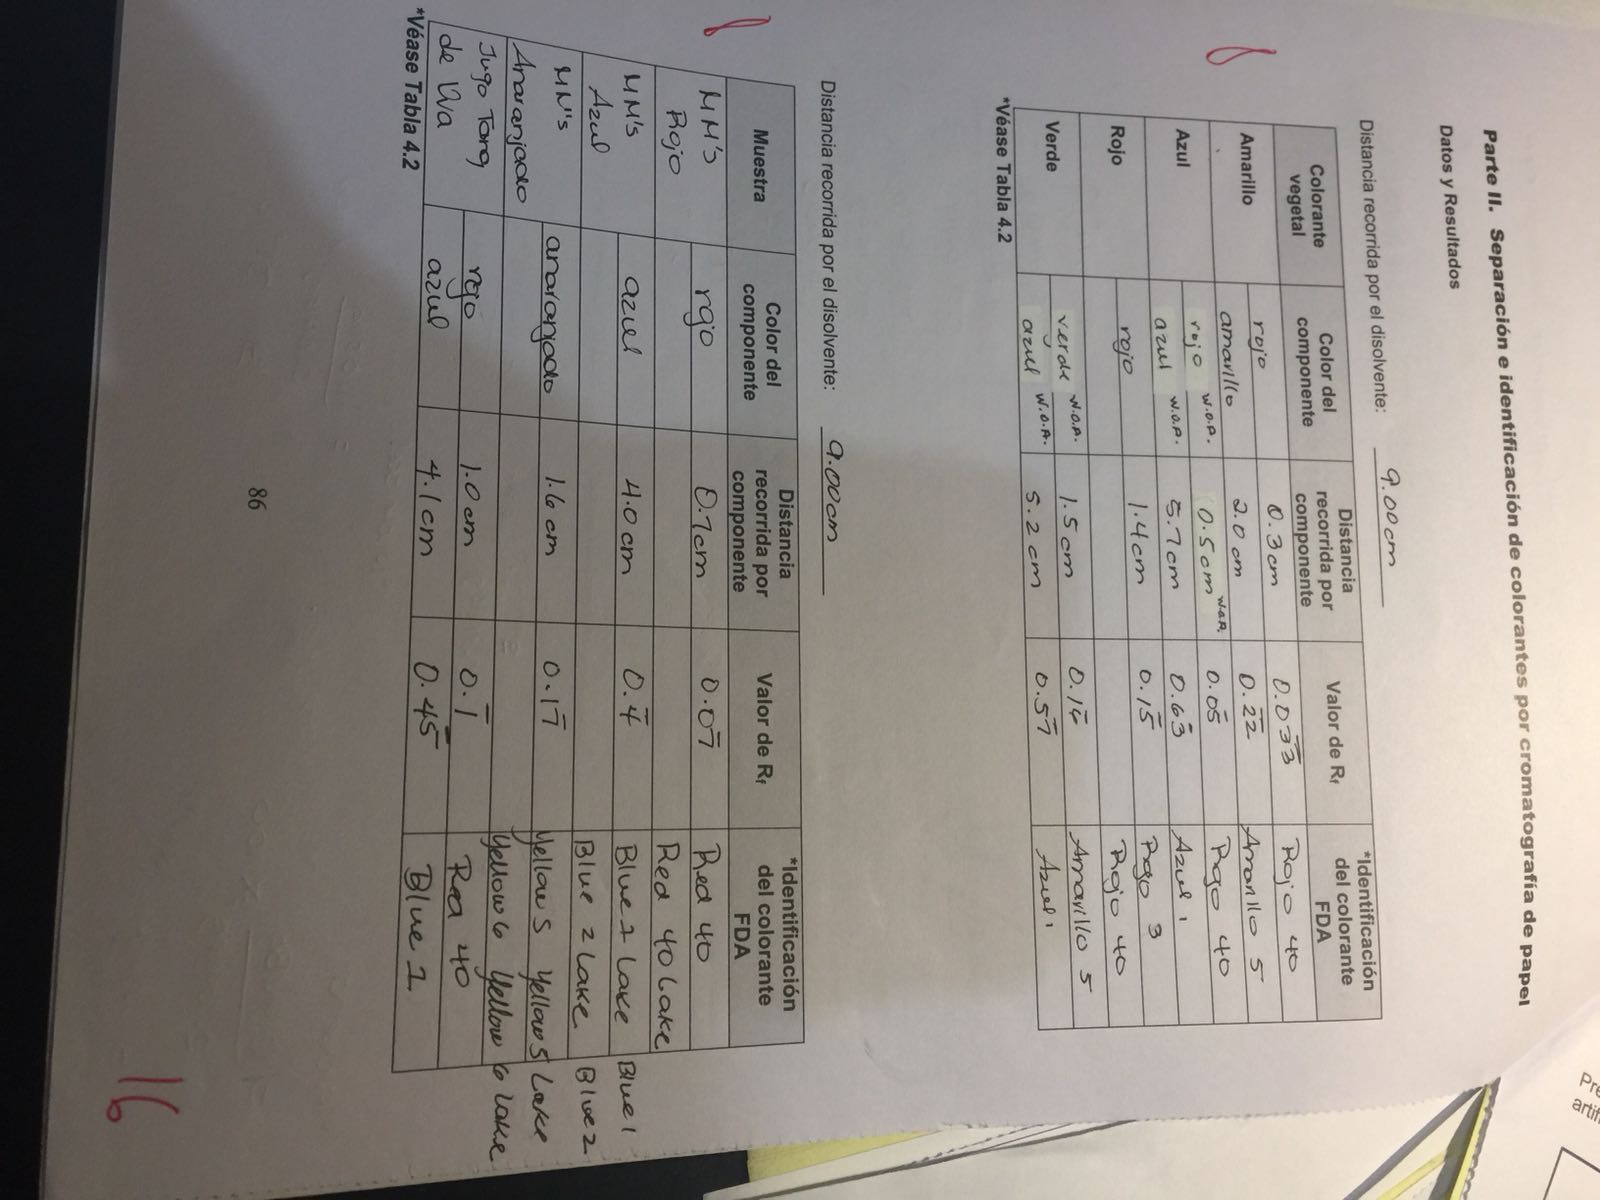 Parte II. Separación e identificación de colorantes por cromatografía de papel
Datos y Resultados
Distancia recorrida por el disolvente: 9.00cm
Colorante vegetal | Color del componente | Distancia recorrida por componente | Valor de Rf | *Identificación del colorante FDA
Amarillo | rojo | 0.3cm | 0.033 | Rojo 40
amarillo | 2.0 cm | 0.22 | Amarillo 5
Azul | rojo W.O.A. | 0.5cm W.O.A. | 0.05 | Rojo 40
azul W.O.A. | 5.7cm | 0.63 | Azul 1
Rojo | rojo | 1.4cm | 0.15 | Rojo 3
Rojo 40
Verde | verde W.O.A. | 1.5cm | 0.16 | Amarillo 5
azul W.O.A. | 5.2 cm | 0.57 | Azul 1
*Véase Tabla 4.2
Distancia recorrida por el disolvente: 9.00cm
Muestra | Color del componente | Distancia recorrida por componente | Valor de Rf | *Identificación del colorante FDA
MM's Rojo | rojo | 0.7cm | 0.07 | Red 40
Red 40 Lake
MM's Azul | azul | 4.0cm | 0.4 | Blue 1 Lake Blue 1
Blue 2 Lake Blue 2
MM's Anaranjado | anaranjado | 1.6 cm | 0.17 | Yellow 5 Yellow 5 Lake
Yellow 6 Yellow 6 Lake
Jugo Tang de Uva | rojo | 1.0 cm | 0.1 | Red 40
azul | 4.1cm | 0.45 | Blue 1
*Véase Tabla 4.2
86
16
Pre
artif